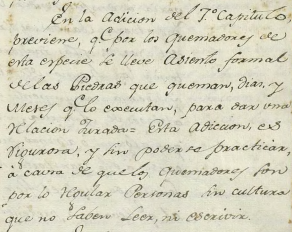 En la Adicion del 7.º Capitulo,
previene, q.e por los Quemadores de
esta especie se lleve Asiento formal
de las Piedras que queman, dias, y
Meses q.e lo executan, para dar una
relacion Jurada = Esta Adicion, es
rigurosa, y sin poderse practicar,
à causa de que los Quemadores son
por lo regular Personas sin cultura
que no saben Leer, ni escrivir.